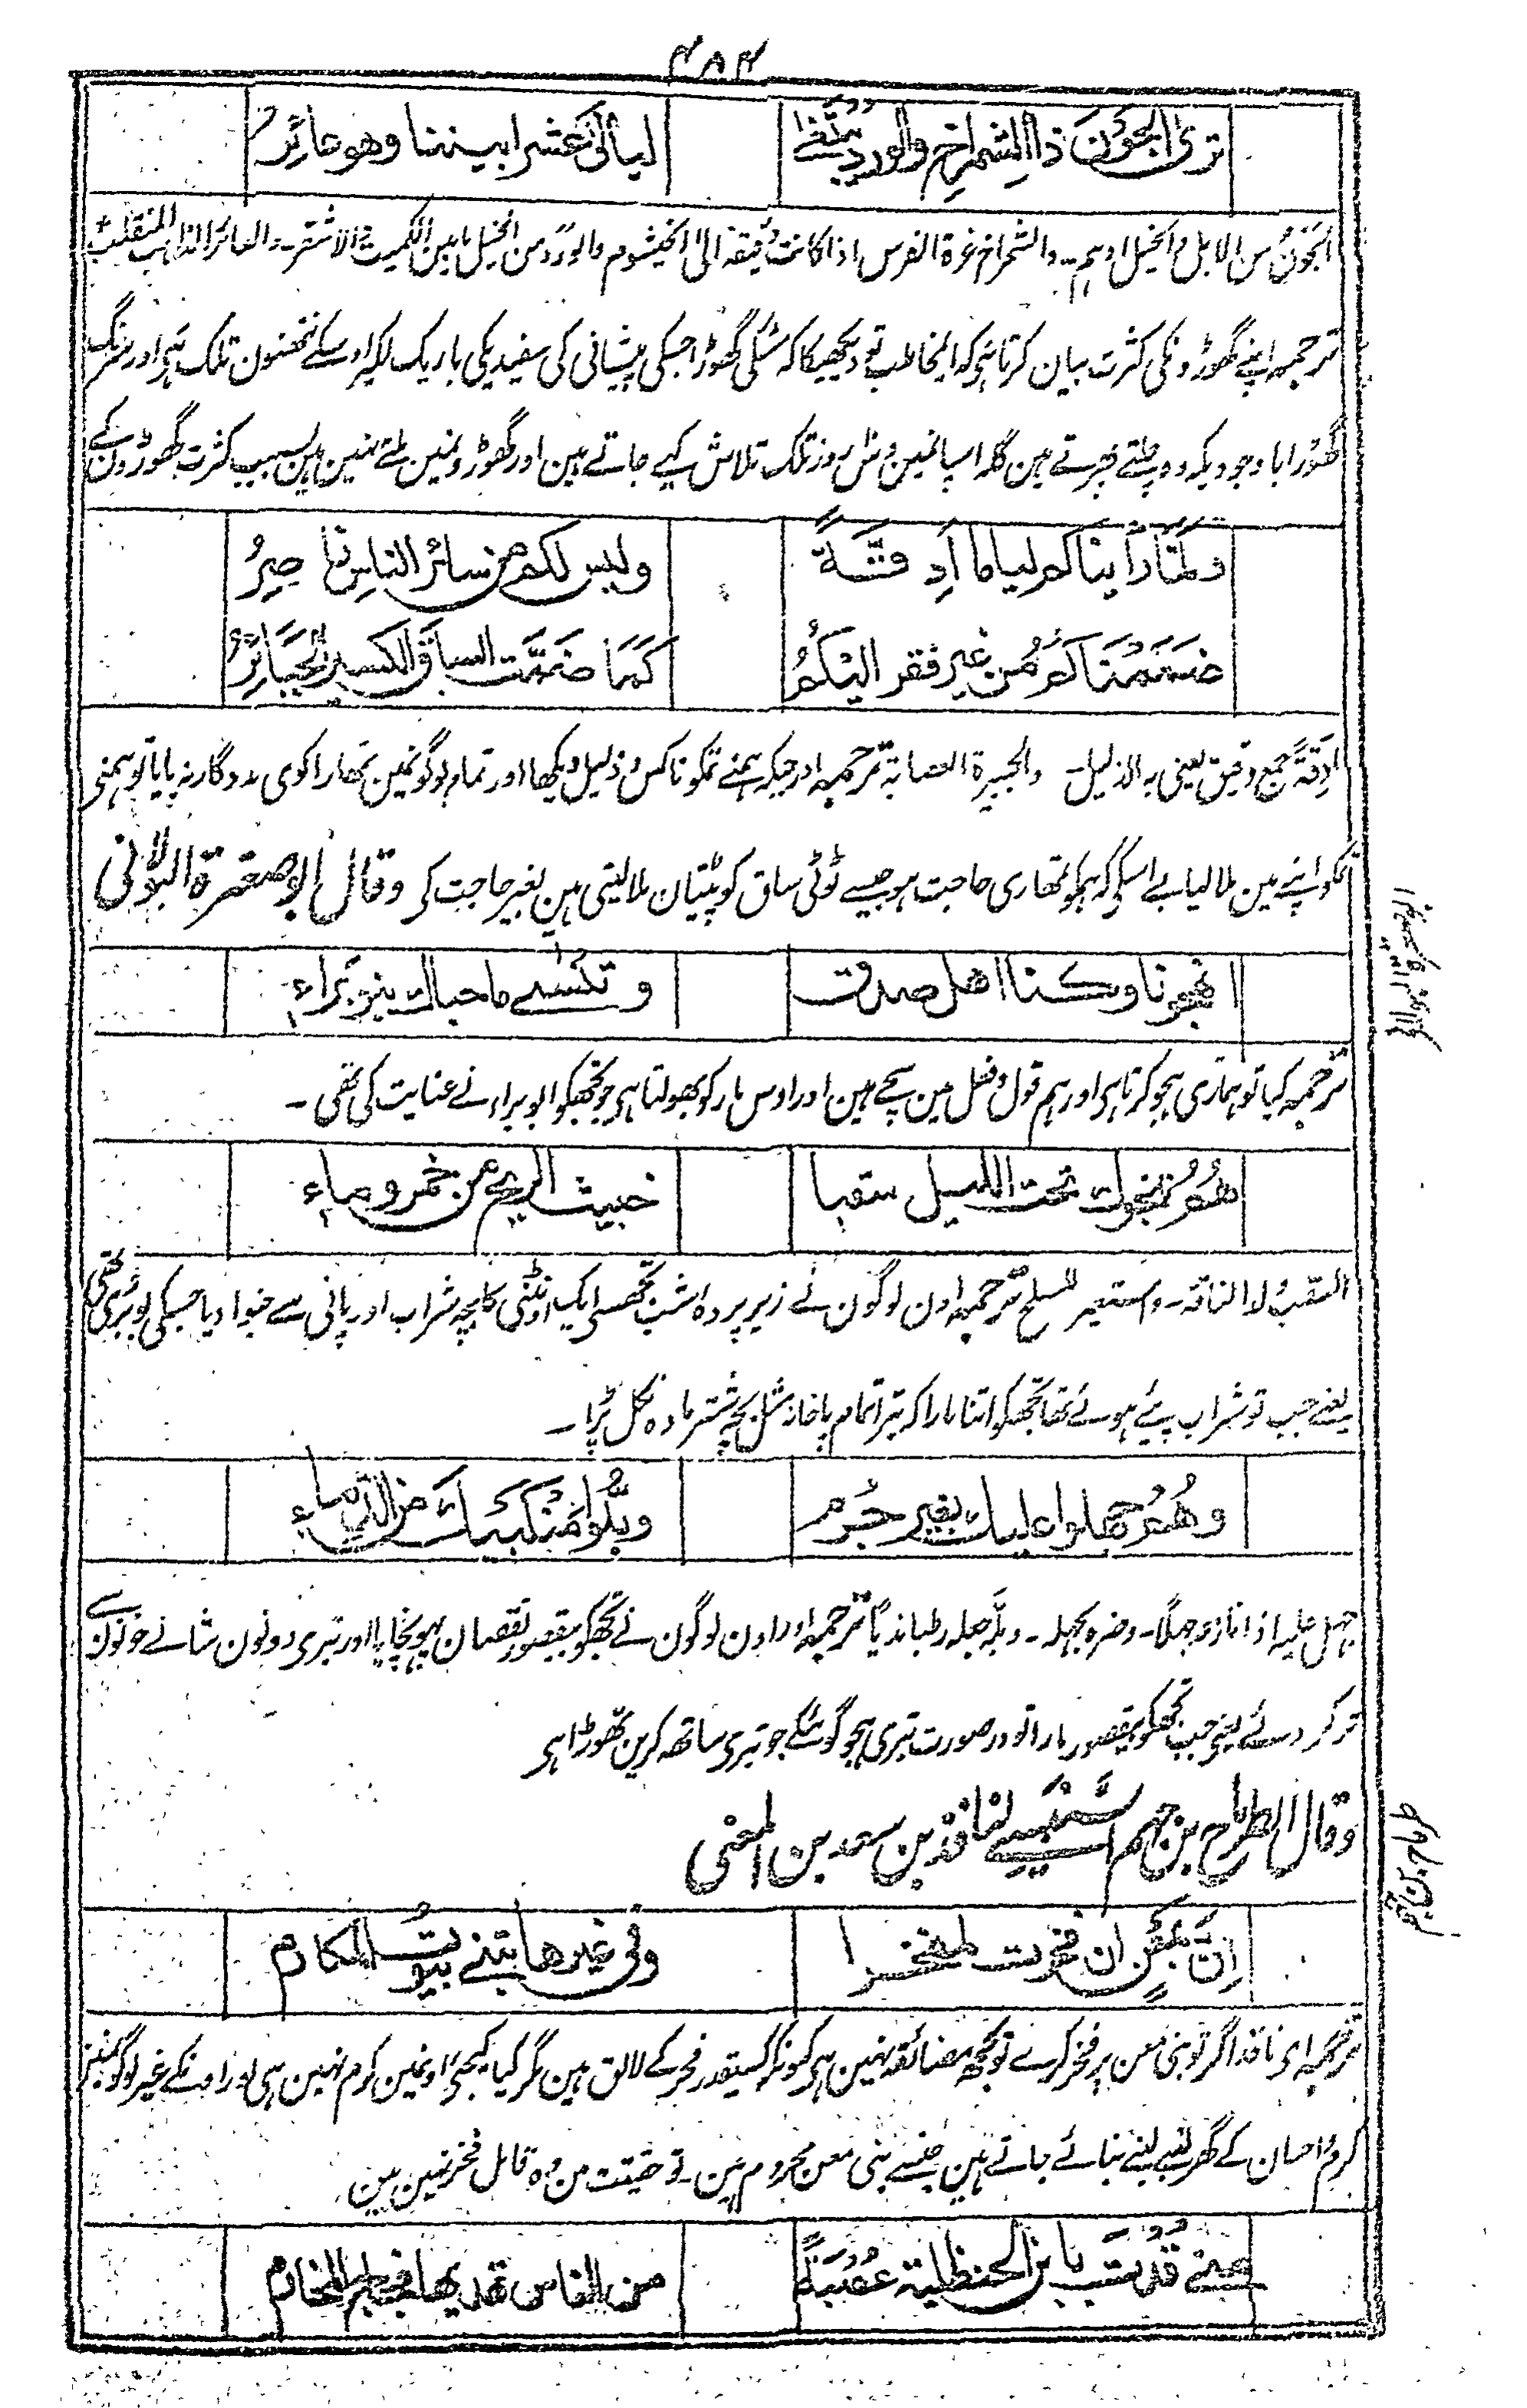 ۴۸۴
ترى الجَوْنَ ذا الشمراخِ والوردَ يُبتَغى لياليَ عشرا بيننا وهو عائِرُ
الجَوْنُ من الابل والخیل ادہم۔ والشمراخ غرۃ الفرس اذا کانت دقیقۃ الی الخیشوم والورد من الخیل ما بین الکمیت والاشقر۔ والعائر الذاہب المنفلت
ترجمہ اپنے گھوڑونکی کثرت بیان کرتا ہی کہ ایمخاطب تو دیکھیگا کہ مشکی گھوڑا جسکی پیشانی کی سفیدیکی باریک لکیر اوسکے نتھنون تلک ہی اور سرنگ
گھوڑا باوجودیکہ وہ چلتے پھرتے ہین گلہ اسپانمین دس روز تلک تلاش کیے جاتے ہین اور گھوڑونمین ملتے نہین ہین بسبب کثرت گھوڑون کے
ولمّا رأيناكم لياما أدِقّةً وليس لكم من سائر الناسِ ناصِرُ
ضَمَمْناكُمُ من غيرِ فقر اليكُمُ كما ضَمَّت الساقَ الكسيرَ الجبائِرُ
اَدِقّۃً جمع دقیق یعنی بہ الذلیل۔ والجبیرۃ العصابۃ ترجمہ اور جبکہ ہمنے تمکو ناکس و ذلیل دیکھا اور تمام لوگونمین تمھارا کوی مددگار نہ پایا تو ہمنی
تمکو اپنے مین ملا لیا بے اسکی کہ ہمکو تمھاری حاجت ہو جیسے ٹوٹی ساق کو پٹیان ملا لیتی ہین بغیر حاجت کی وقال ابو صعترة البولانی
ابو صعترۃ البولانی
اتهجونا وكنا اهل صدق وتنسى ما حباك بنو براء
ترجمہ کیا تو ہماری ہجو کرتا ہی اور ہم قول و فعل مین سچے ہین اور اوس مار کو بھولتا ہی جو تجھکو ابو براء نے عنایت کی تھی ۔
هُمُ نتجوك تحت الليل سقبا خبيث الريح من خمر وماء
السقب ولد الناقۃ۔ واستعیر للسلح ترجمہ اون لوگون نے زیر پردہ شب تجھسی ایک اونٹنی کا بچہ شراب اور پانی سے جنوا دیا جسکی بو بری تھی
یعنے جب تو شراب پیئے ہوئے تھا تجھکو اتنا مارا کہ تیرا تمام پاخانہ مثل بچہ شتر مادہ نکل پڑا ۔
وهُمُ جهلوا عليك بغير جُرم وبلّوا مَنْكبيك من الدماء
جہل علیہ اذا نازی جہلا۔ وضرہ بجہلہ۔ وبلّہ جعلہ رطبا ندیًا ترجمہ اور اون لوگون نے تجھکو بیقصور نقصان پہونچایا اور تیری دونون شانے خونون سے
تر کر دیئے یعنی جب تجھکو بیقصور مارا تو در صورت تیری ہجو گوئیکے جو تیری ساتھ کرین تھوڑا ہی
وقال الطرماح بن جہم السنبسی لنافذ بن سعد بن المعنی
طرماح بن جہم
إنّ بمَعْنٍ ان فخرت لمفخرا وفى غيرها تبنى بيوتُ المكارم
ترجمہ ای نافذ اگر تو بنی معن پر فخر کرے تو کچھ مضائقہ نہین ہی کیونکہ کسیقدر فخر کے لائق ہین مگر کیا کیجئ اونمین کرم نہین ہی اور اونکے غیر لوگونمین
کرم و احسان کے گھر بنائے جاتے ہین جنسے بنی معن محروم ہین۔ تو حقیقت مین وہ قابل فخر نہین ہین
متى قُدتَ يا بن الحنظلية عُصْبةً من الناس تهديها فجاج المخارم